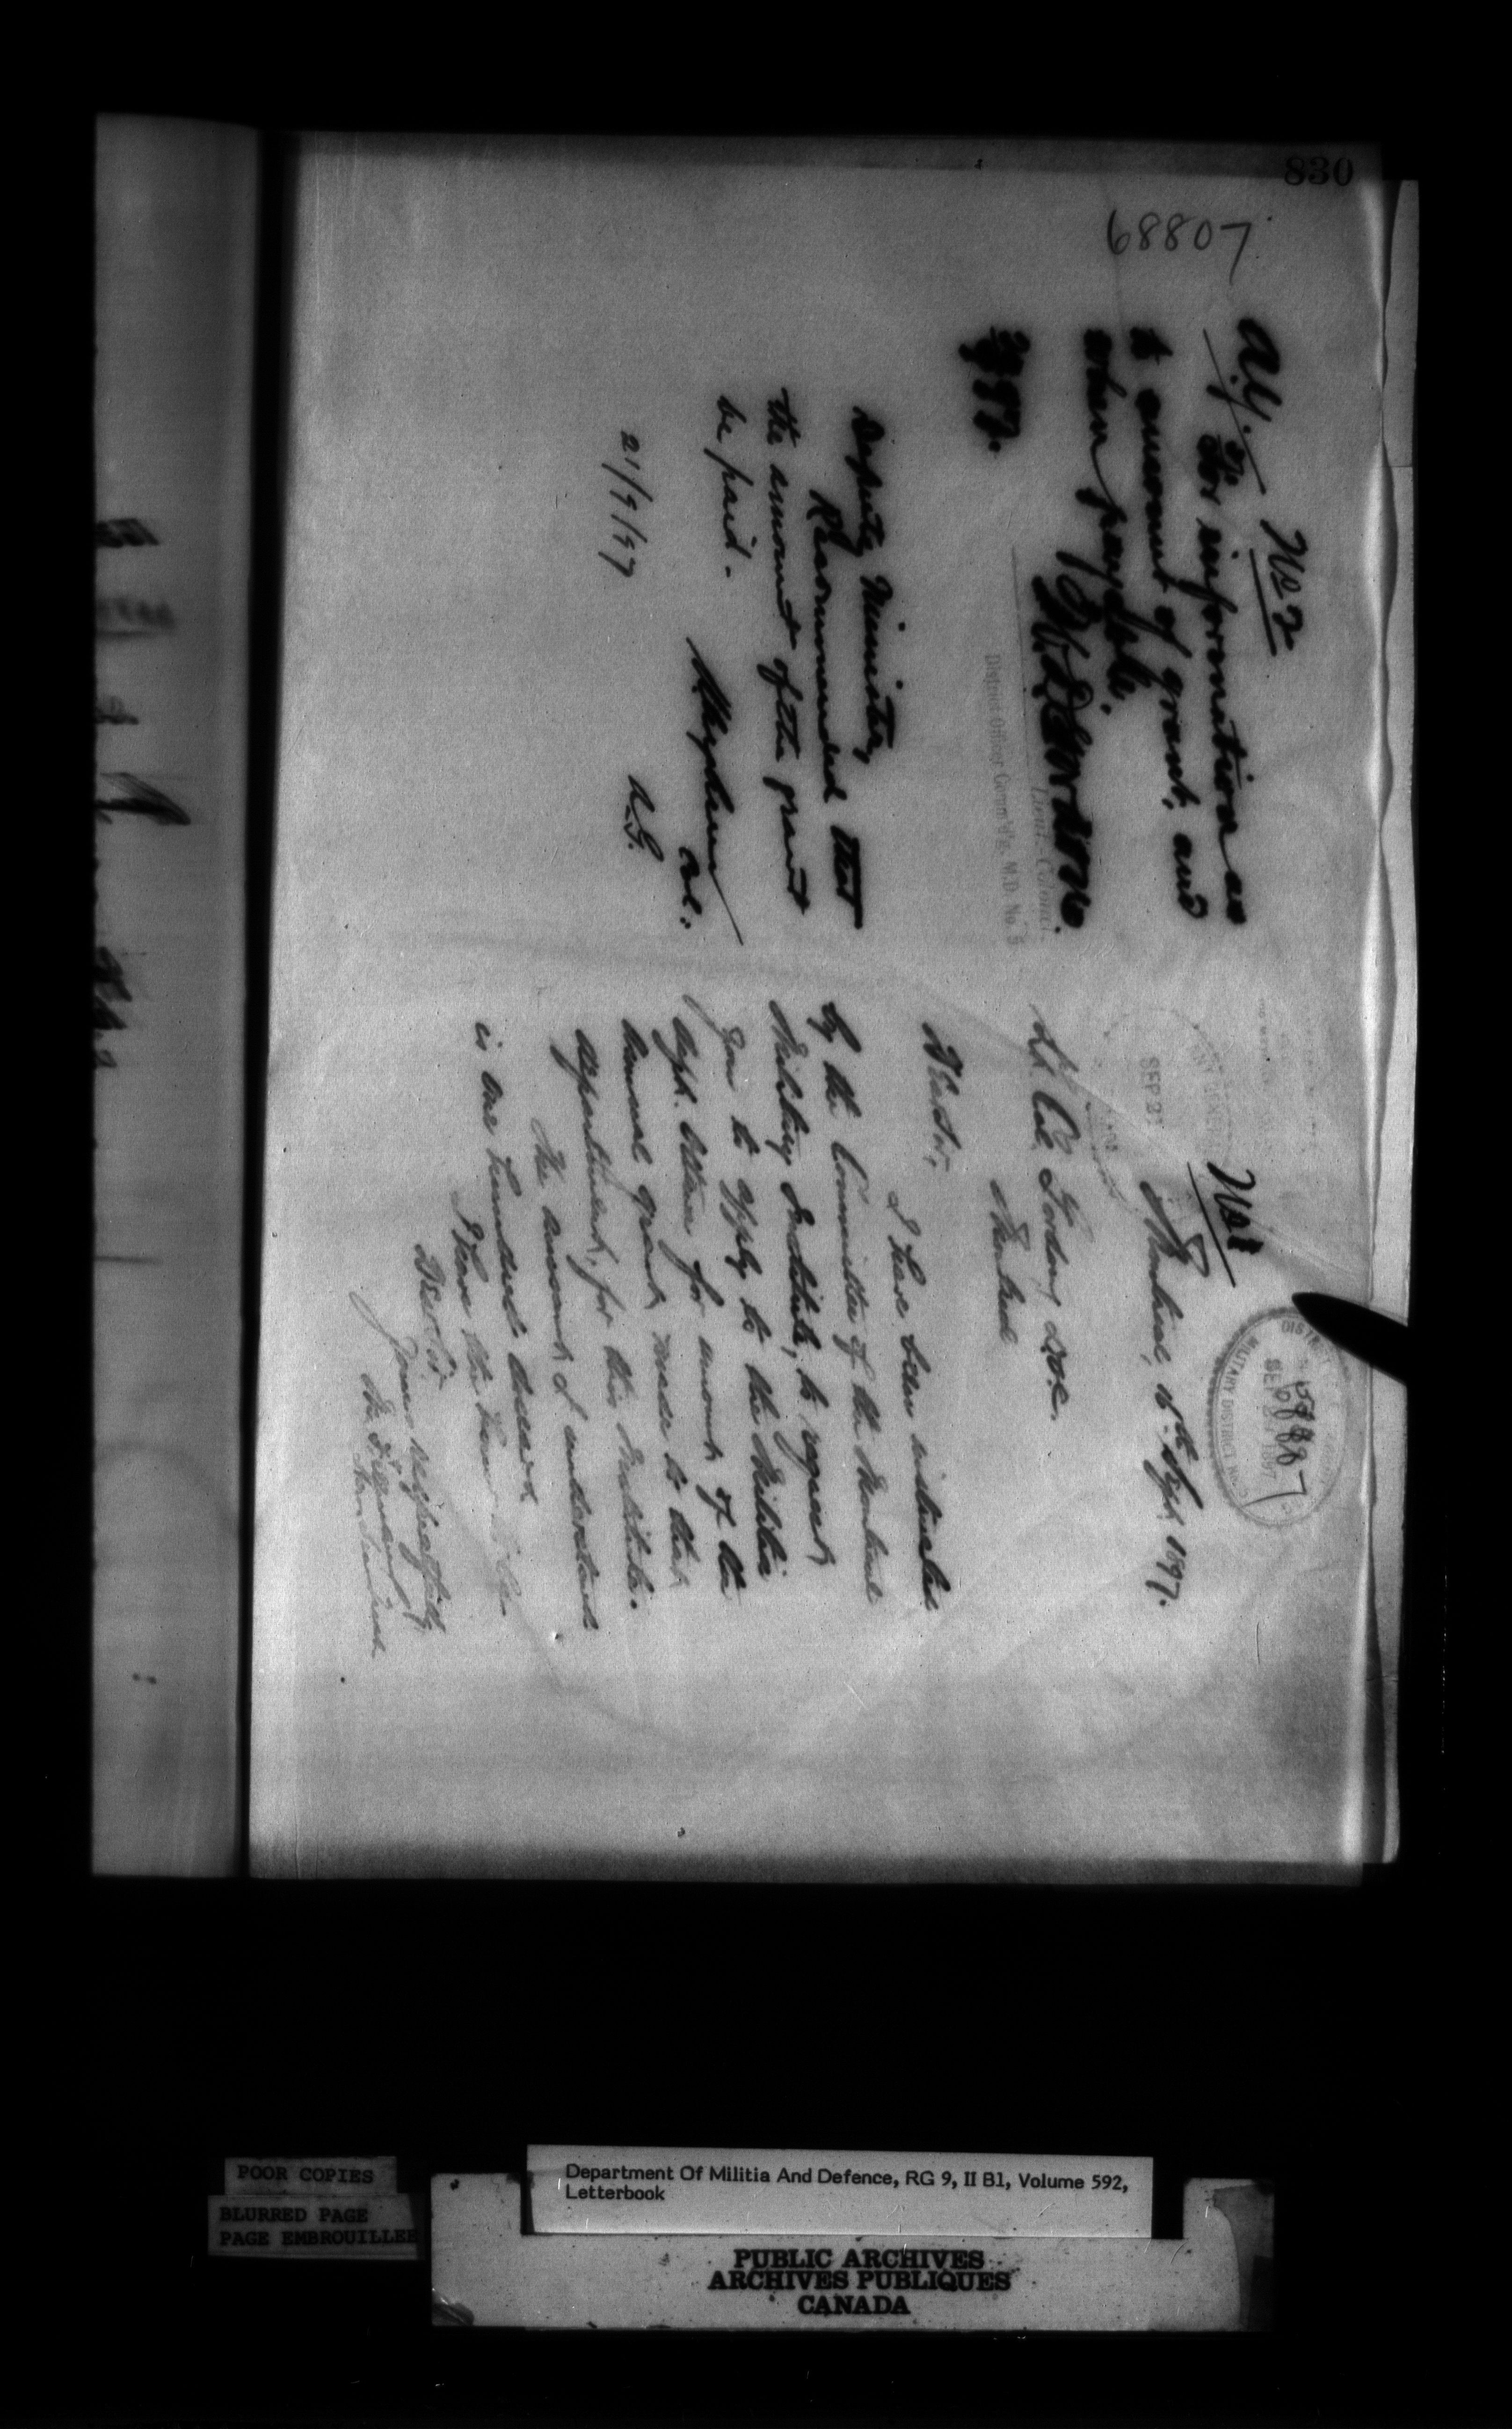 830
68807
No 2
A.G.
For information as
to amount of grant, and
when payable.
W.D. Gordon
Lieut. Colonel.
District Officer Comm'd'g. M.D. No. 5
Deputy Minister,
Recommended that
the amount of the grant
be paid.
Col:
A.G.
21/9/97
No 1
DISTRICT
MILITARY DISTRICT No
SEP 1897
68807
SEP 21
Montreal, Sept 1897.
Lt. Col. Gordon, D.O.C.
Montreal
Dear Sir,
I have been instructed
by the Committee of the Montreal
Military Institute, to request
you to apply to the Militia
Dept. Ottawa for amount of the
annual grant made to this
department, for this Institute.
The amount I understand
is one hundred dollars.
I have the honor to be
Dear Sir
Yours respectfully
POOR COPIES
BLURRED PAGE
PAGE EMBROUILLEE
Department Of Militia And Defence, RG 9, II B1, Volume 592,
Letterbook
PUBLIC ARCHIVES
ARCHIVES PUBLIQUES
CANADA